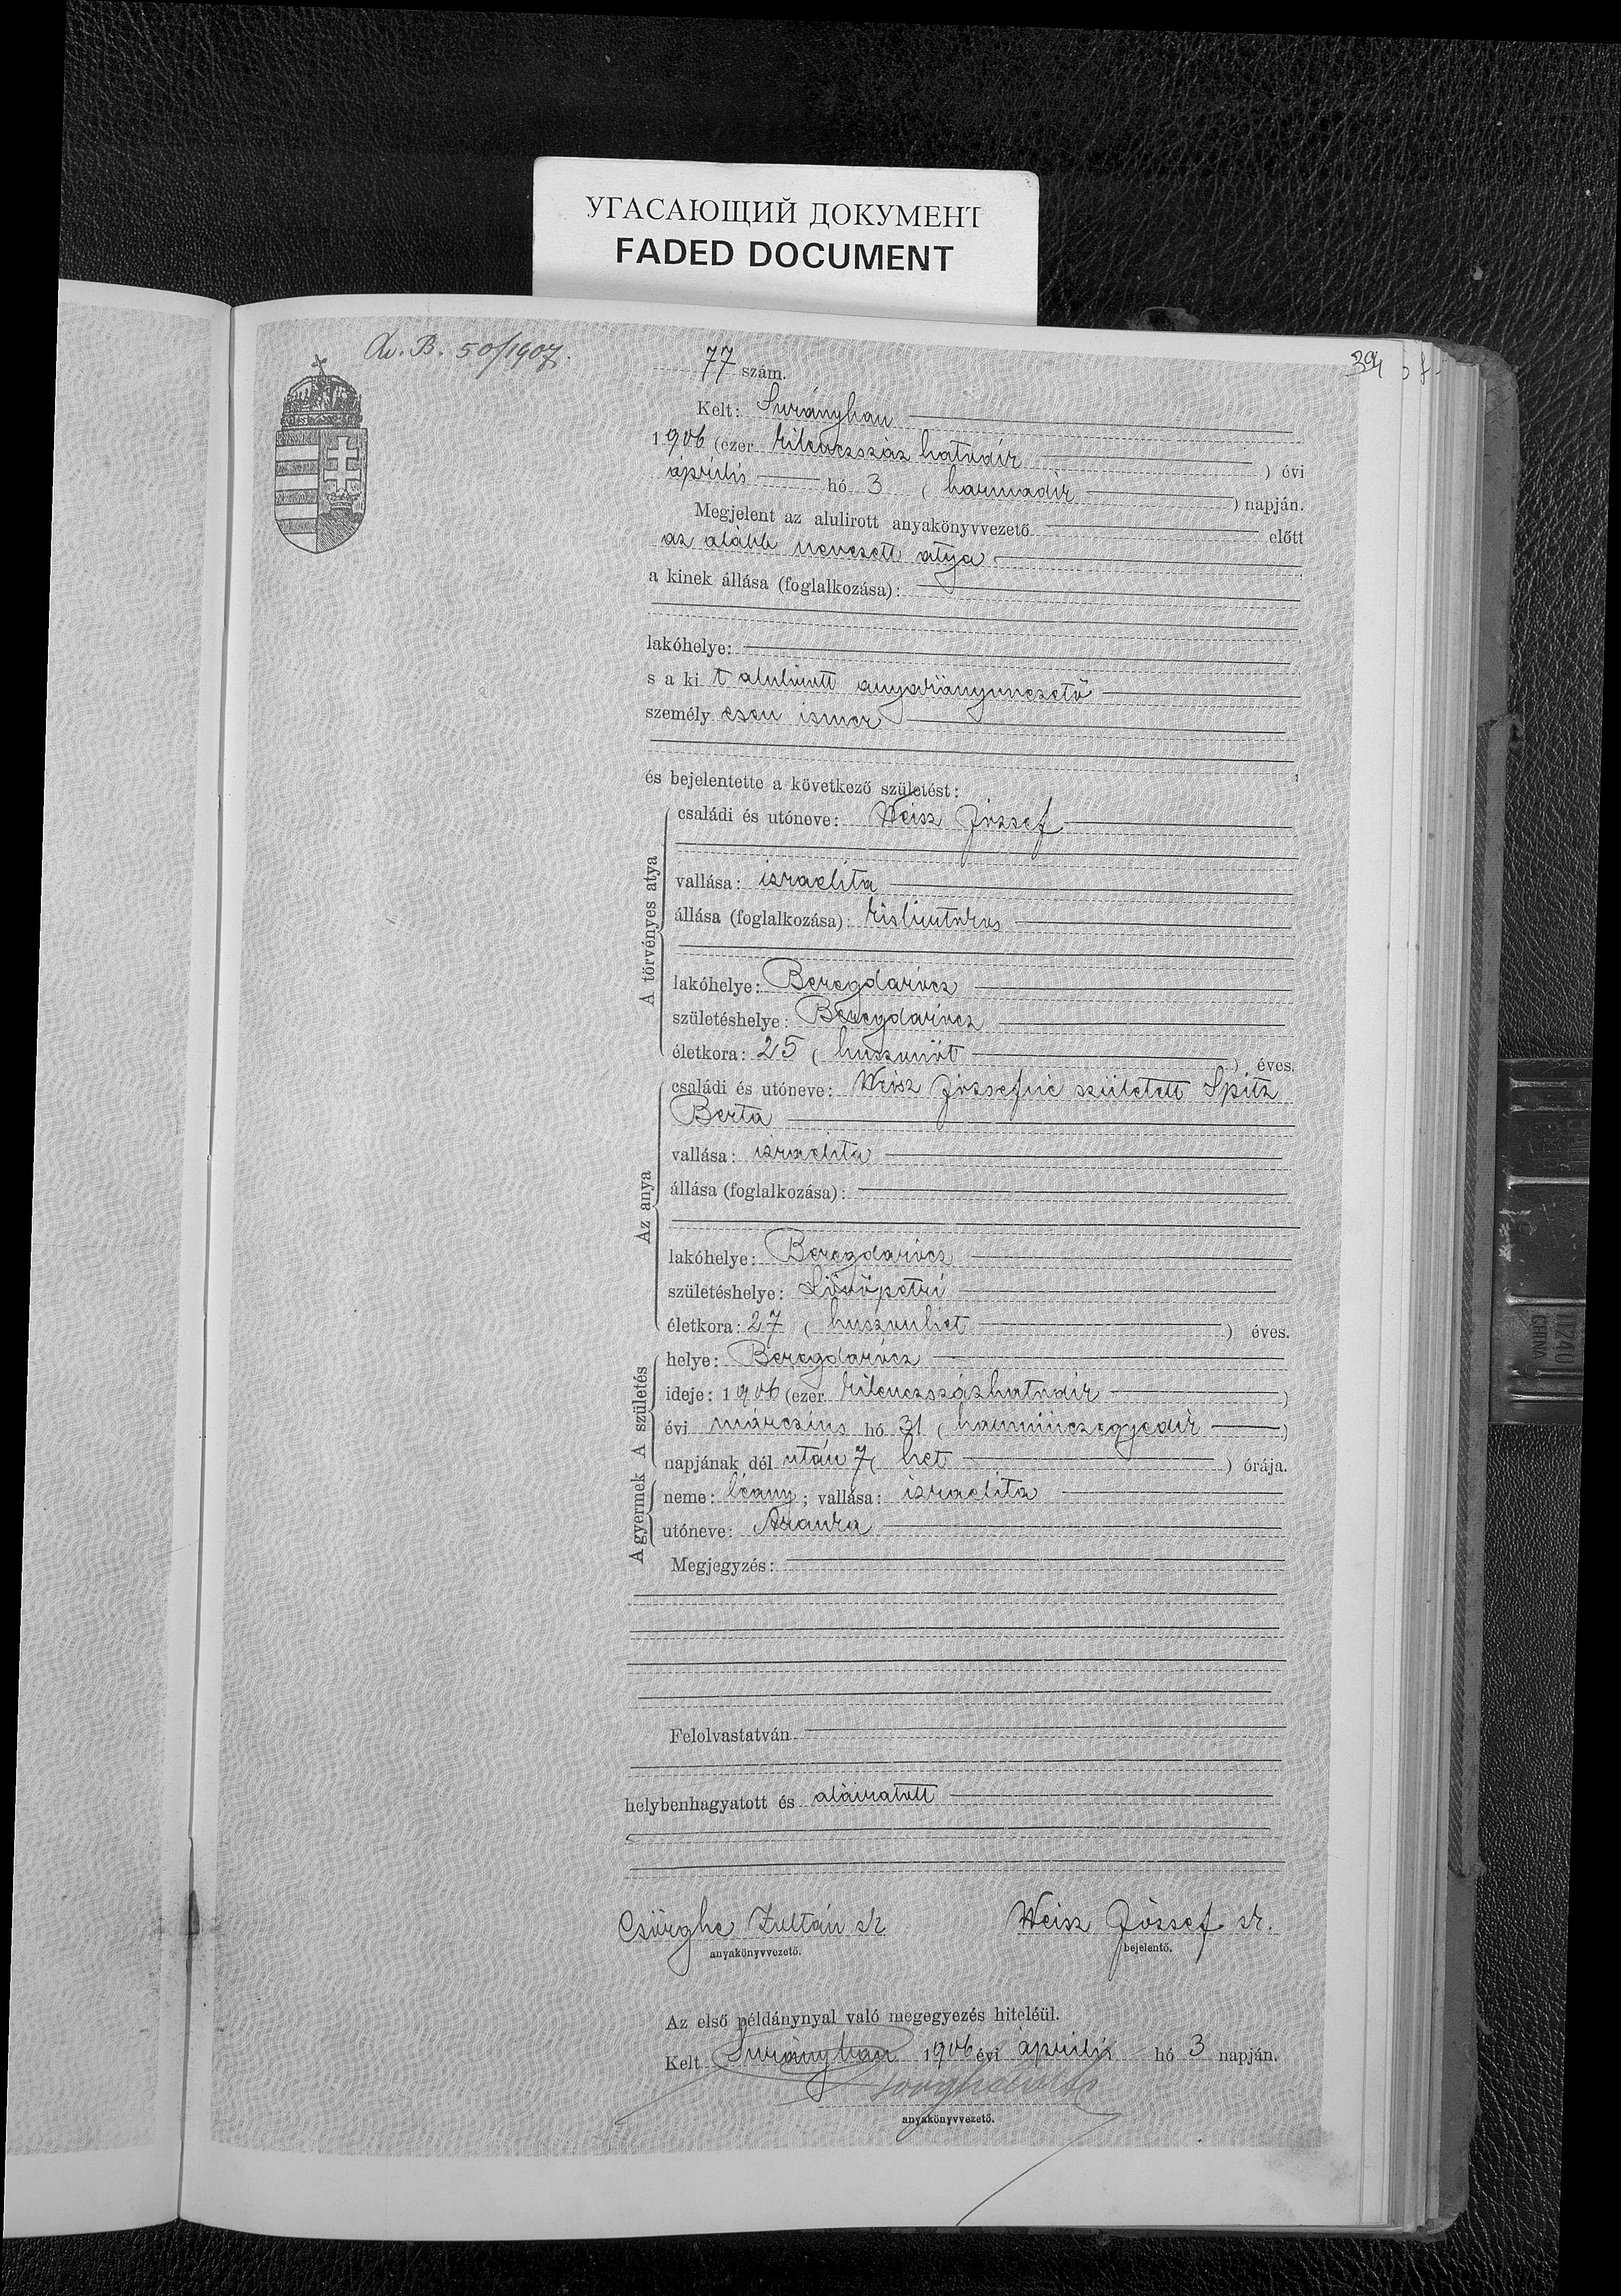 УГАСАЮЩИЙ ДОКУМЕНТ
FADED DOCUMENT
B. 50/1907.
77 szám.
Kelt: Surányban
1906 (ezer kilenczszáz hatodik ) évi
április hó 3 ( harmadik ) napján.
Megjelent az alulirott anyakönyvvezető előtt
az alább nevezett atya
a kinek állása (foglalkozása):
lakóhelye:
s a ki t alulirott anyakönyvvezető
személy esen ismer
és bejelentette a következő születést:
A törvényes atya
családi és utóneve: Weisz József
vallása: izraelita
állása (foglalkozása): kisbirtokos
lakóhelye: Beregdarócz
születéshelye: Beregdarócz
életkora: 25 ( huszonöt ) éves.
Az anya
családi és utóneve: Weisz Józsefné született Spitz
Berta
vallása: izraelita
állása (foglalkozása):
lakóhelye: Beregdarócz
születéshelye: Lövőpetri
életkora: 27 ( huszonhét ) éves.
A születés
helye: Beregdarócz
ideje: 1906 (ezer kilenczszázhatodik )
évi márczius hó 31 ( harminczegyedik )
napjának dél után 7 ( hét ) órája.
A gyermek
neme: leány; vallása: izraelita
utóneve: Aranka
Megjegyzés:
Felolvastatván
helybenhagyatott és aláiratott
Csörghe Zoltán sk
anyakönyvvezető.
Weisz József sk.
bejelentő.
Az első példánynyal való megegyezés hiteléül.
Kelt Surányban 1906 évi április hó 3 napján.
anyakönyvvezető.